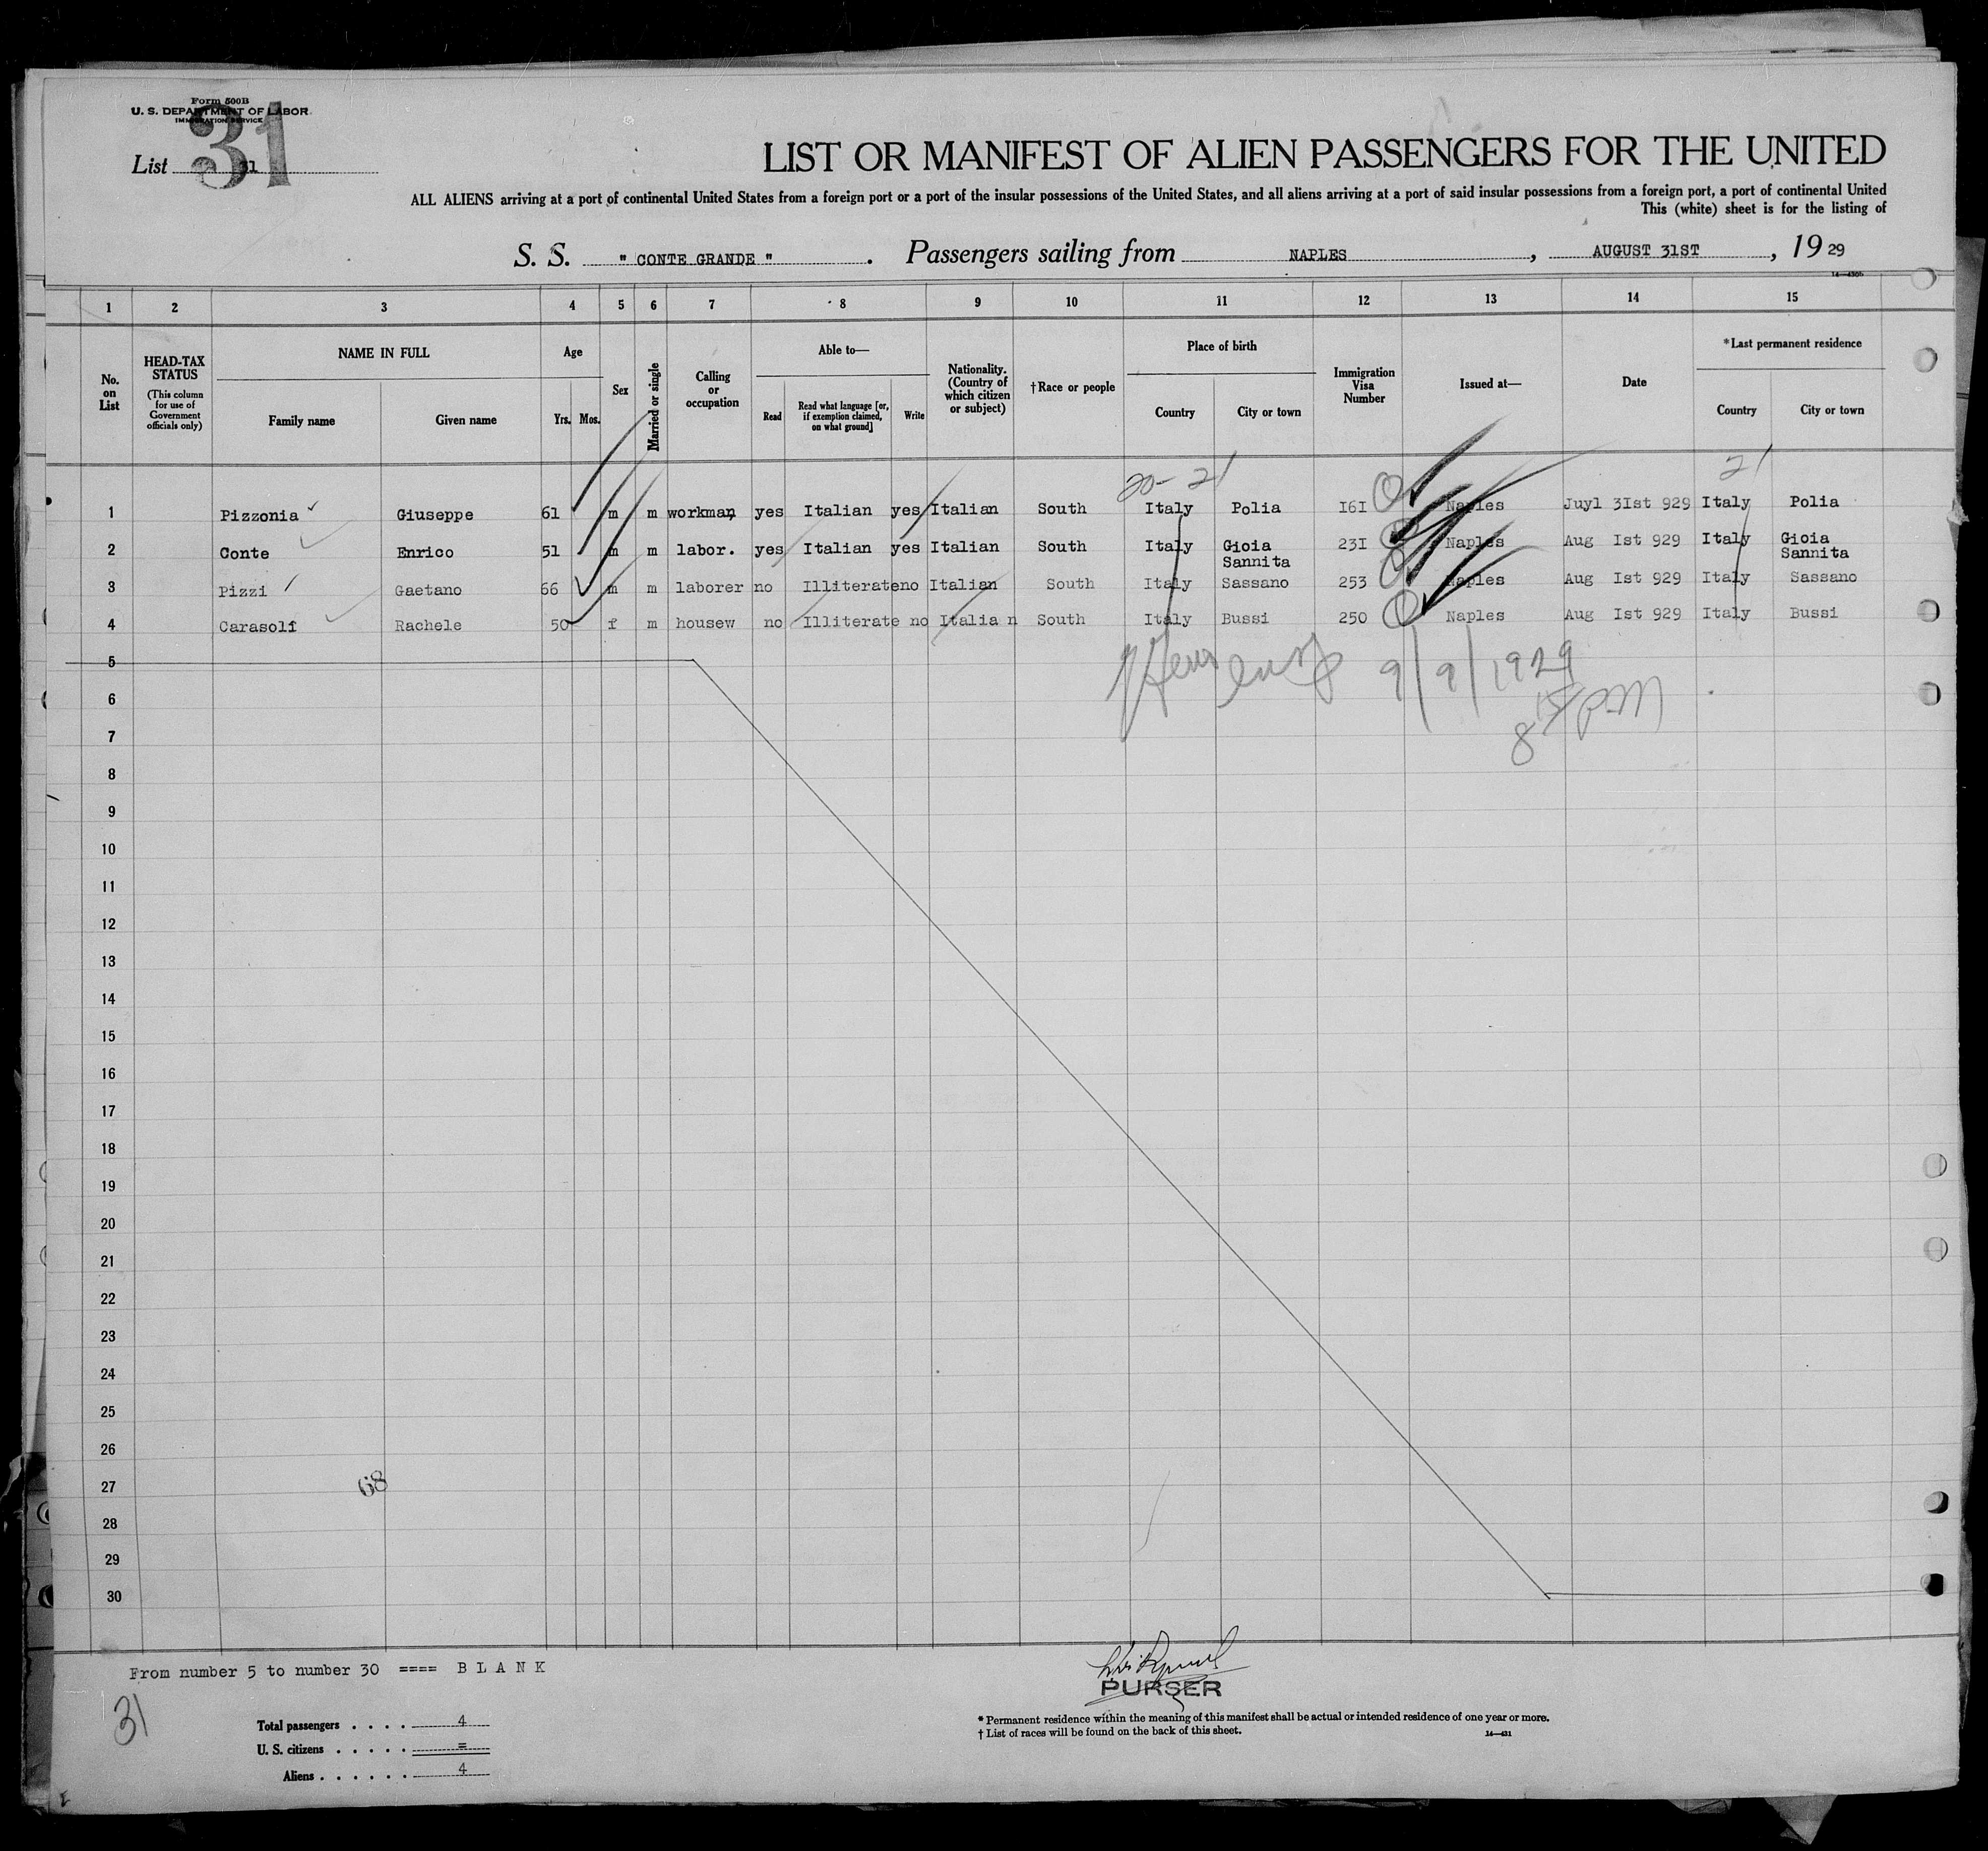 Form 500B
U. S. DEPARTMENT OF LABOR
IMMIGRATION SERVICE
List 31
31
LIST OR MANIFEST OF ALIEN PASSENGERS FOR THE UNITED
ALL ALIENS arriving at a port of continental United States from a foreign port or a port of the insular possessions of the United States, and all aliens arriving at a port of said insular possessions from a foreign port, a port of continental United
This (white) sheet is for the listing of
S. S. " CONTE GRANDE " . Passengers sailing from NAPLES , AUGUST 31ST , 19 29
1 2 3 4 5 6 7 8 9 10 11 12 13 14 15
No. on List
HEAD-TAX STATUS (This column for use of Government officials only)
NAME IN FULL
Family name Given name
Age
Yrs. Mos.
Sex
Married or single
Calling or occupation
Able to—
Read Read what language [or, if exemption claimed, on what ground] Write
Nationality. (Country of which citizen or subject)
†Race or people
Place of birth
Country City or town
Immigration Visa Number
Issued at—
Date
*Last permanent residence
Country City or town
20- 21 21
1 Pizzonia Giuseppe 61 m m workman, yes Italian yes Italian South Italy Polia I6I Naples Juyl 3Ist 929 Italy Polia
2 Conte Enrico 51 m m labor. yes Italian yes Italian South Italy Gioia Sannita 23I Naples Aug Ist 929 Italy Gioia Sannita
3 Pizzi Gaetano 66 m m laborer no Illiterate no Italian South Italy Sassano 253 Naples Aug Ist 929 Italy Sassano
4 Carasoli Rachele 50 f m housew no Illiterate no Italia n South Italy Bussi 250 Naples Aug Ist 929 Italy Bussi
5
9/9/1929
6
8 15/ PM
7
8
9
10
11
12
13
14
15
16
17
18
19
20
21
22
23
24
25
26
27
68
28
29
30
From number 5 to number 30 ==== B L A N K
PURSER
31
Total passengers . . . . 4
U. S. citizens . . . . . =
Aliens . . . . . . 4
* Permanent residence within the meaning of this manifest shall be actual or intended residence of one year or more.
† List of races will be found on the back of this sheet.
14—431